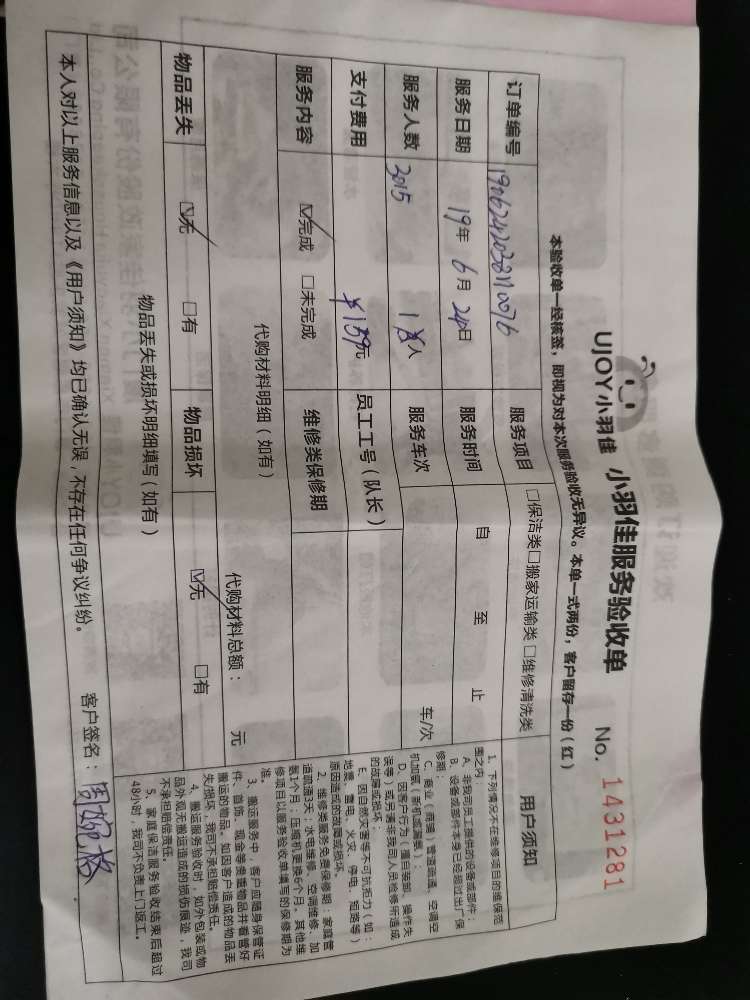 UJOY小羽佳 小羽佳服务验收单 No. 1431281
本验收单一经核签，即视为对本次服务验收无异议。本单一式两份，客户留存一份（红）
订单编号 服务项目 □保洁类□搬家运输类□维修清洗类
服务日期 19年 6月 24日 服务时间 自 至 止
服务人数 3015 1 人 服务车次 车/次
支付费用 ¥159元 员工工号（队长）
服务内容 ☑完成 □未完成 维修类保修期
代购材料明细（如有） 代购材料总额： 元
物品丢失 ☑无 □有 物品损坏 ☑无 □有
物品丢失或损坏明细填写（如有）
本人对以上服务信息以及《用户须知》均已确认无误，不存在任何争议纠纷。 客户签名：
用户须知
1、下列情况不在维修项目的维保范
围之内
A、非我司员工提供的设备或部件；
B、设备或部件本身已经超过出厂保
修期；
C、商业（商铺）管道疏通、空调空
机加氨（制机或漏氨）；
D、因客户行为（擅自装卸、操作失
误等）或另请非我司人员检修所造成
的故障或损坏；
E、因自然灾害等不可抗拒力（如：
地震、雷电、火灾、停电、短路等）
原因造成的故障或损坏。
2、维修类服务免费保修期：家庭管
道疏通3天；水电维修、空调维修、加
氨1个月；压缩机更换6个月，其他维
修项目以服务验收单填写的保修期为
准。
3、搬运服务中，客户应随身保管证
件、首饰、现金等贵重物品并看管好
搬运的物品，如因客户造成的物品丢
失/损坏，我司不承担赔偿责任。
4、搬运服务验收时，如外包装或物
品外观无搬运造成的损伤痕迹，我司
不承担赔偿责任。
5、家庭保洁服务验收结束后超过
48小时，我司不负责上门返工。